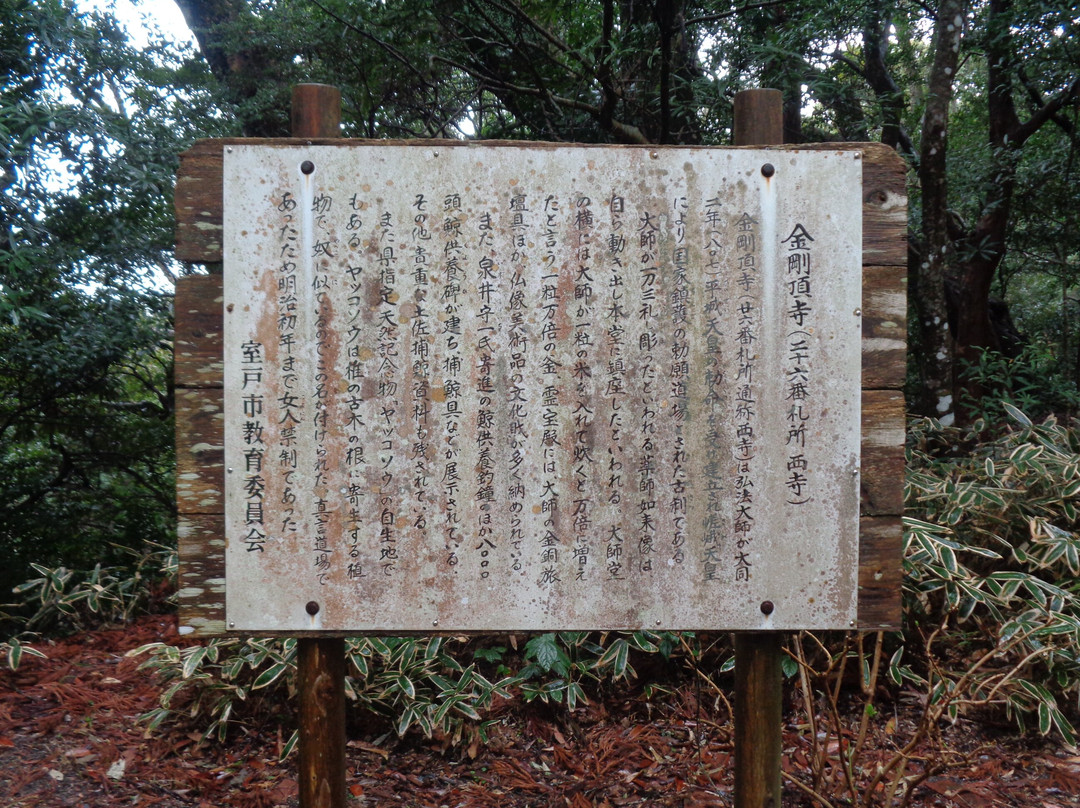 金剛頂寺(二十六番札所 西寺)
金剛頂寺(廿六番札所通称西寺)は弘法大師が大同
二年八〇七平城天皇の勅命を受け建立され嵯峨天皇
により国家鎮護の勅願道場とされた古刹である
大師が一刀三礼し彫ったといわれる薬師如来像は
自ら動き出し本堂に鎮座したといわれる。大師堂
の横には大師が一粒の米を入れて吹くと万倍に増え
たと言う一粒万倍の釜、霊宝殿には大師の金銅旅
壇具ほか、仏像美術品の文化財が多く納められている
また、泉井守一氏寄進の鯨供養釣鐘のほか八〇〇
頭鯨供養碑が建ち捕鯨具などが展示されている。
その他貴重な土佐捕鯨資料も残されている。
また県指定天然記念物、ヤッコソウ、の自生地で
もある ヤッコソウは椎の古木の根に寄生する植
物で、奴に似ているのでこの名が付けられた、真言道場で
あったため明治初年まで女人禁制であった
室戸市教育委員会